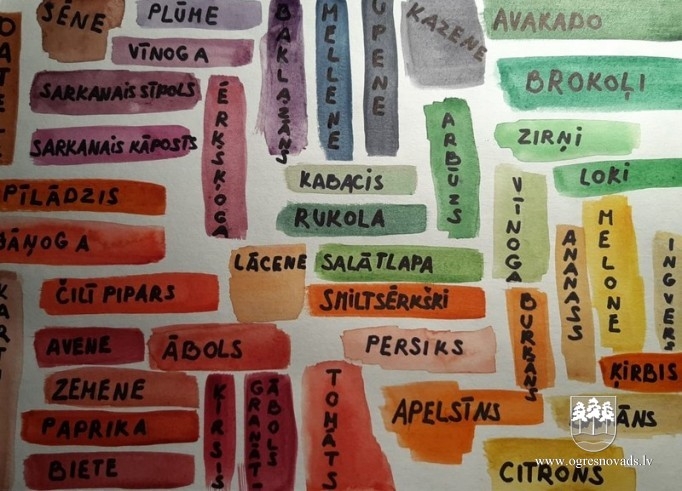 SĒNE
PLŪME
BAKLAŽĀNS
MELLENE
UPENE
KAZENE
AVAKADO
VĪNOGA
SARKANAIS SĪPOLS
ĒRKŠĶOGA
BROKOĻI
SARKANAIS KĀPOSTS
ARBŪZS
ZIRŅI
KABACIS
LOKI
PĪLĀDZIS
RUKOLA
VĪNOGA
MELONE
LĀCENE
SALĀTLAPA
ANANASS
INGVERS
ČILĪ PIPARS
SMILTSĒRKŠĶI
BURKĀNS
AVENE
ĀBOLS
PERSIKS
ĶIRBIS
ZEMENE
ĶIRSIS
GRANĀT-
ĀBOLS
TOMĀTS
APELSĪNS
PAPRIKA
BIETE
CITRONS
www.ogresnovads.lv